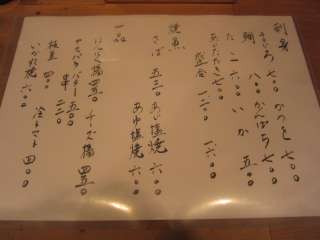 刺身
七〇〇 かつを 七〇〇
鯛 八〇〇 かんぱち 七〇〇
たこ 六〇〇 いか 五〇〇
あじたたき 七〇〇
盛合 一二〇〇 一六〇〇
焼魚
さば 五三〇 あじ塩焼 六〇〇
あゆ塩焼 六〇〇
一品
にんにく揚 四五〇 チーズ揚 四五〇
アスパラバター 五〇〇
串 二二〇
枝豆 四〇〇 冷トマト 四〇〇
いか丸焼 六〇〇